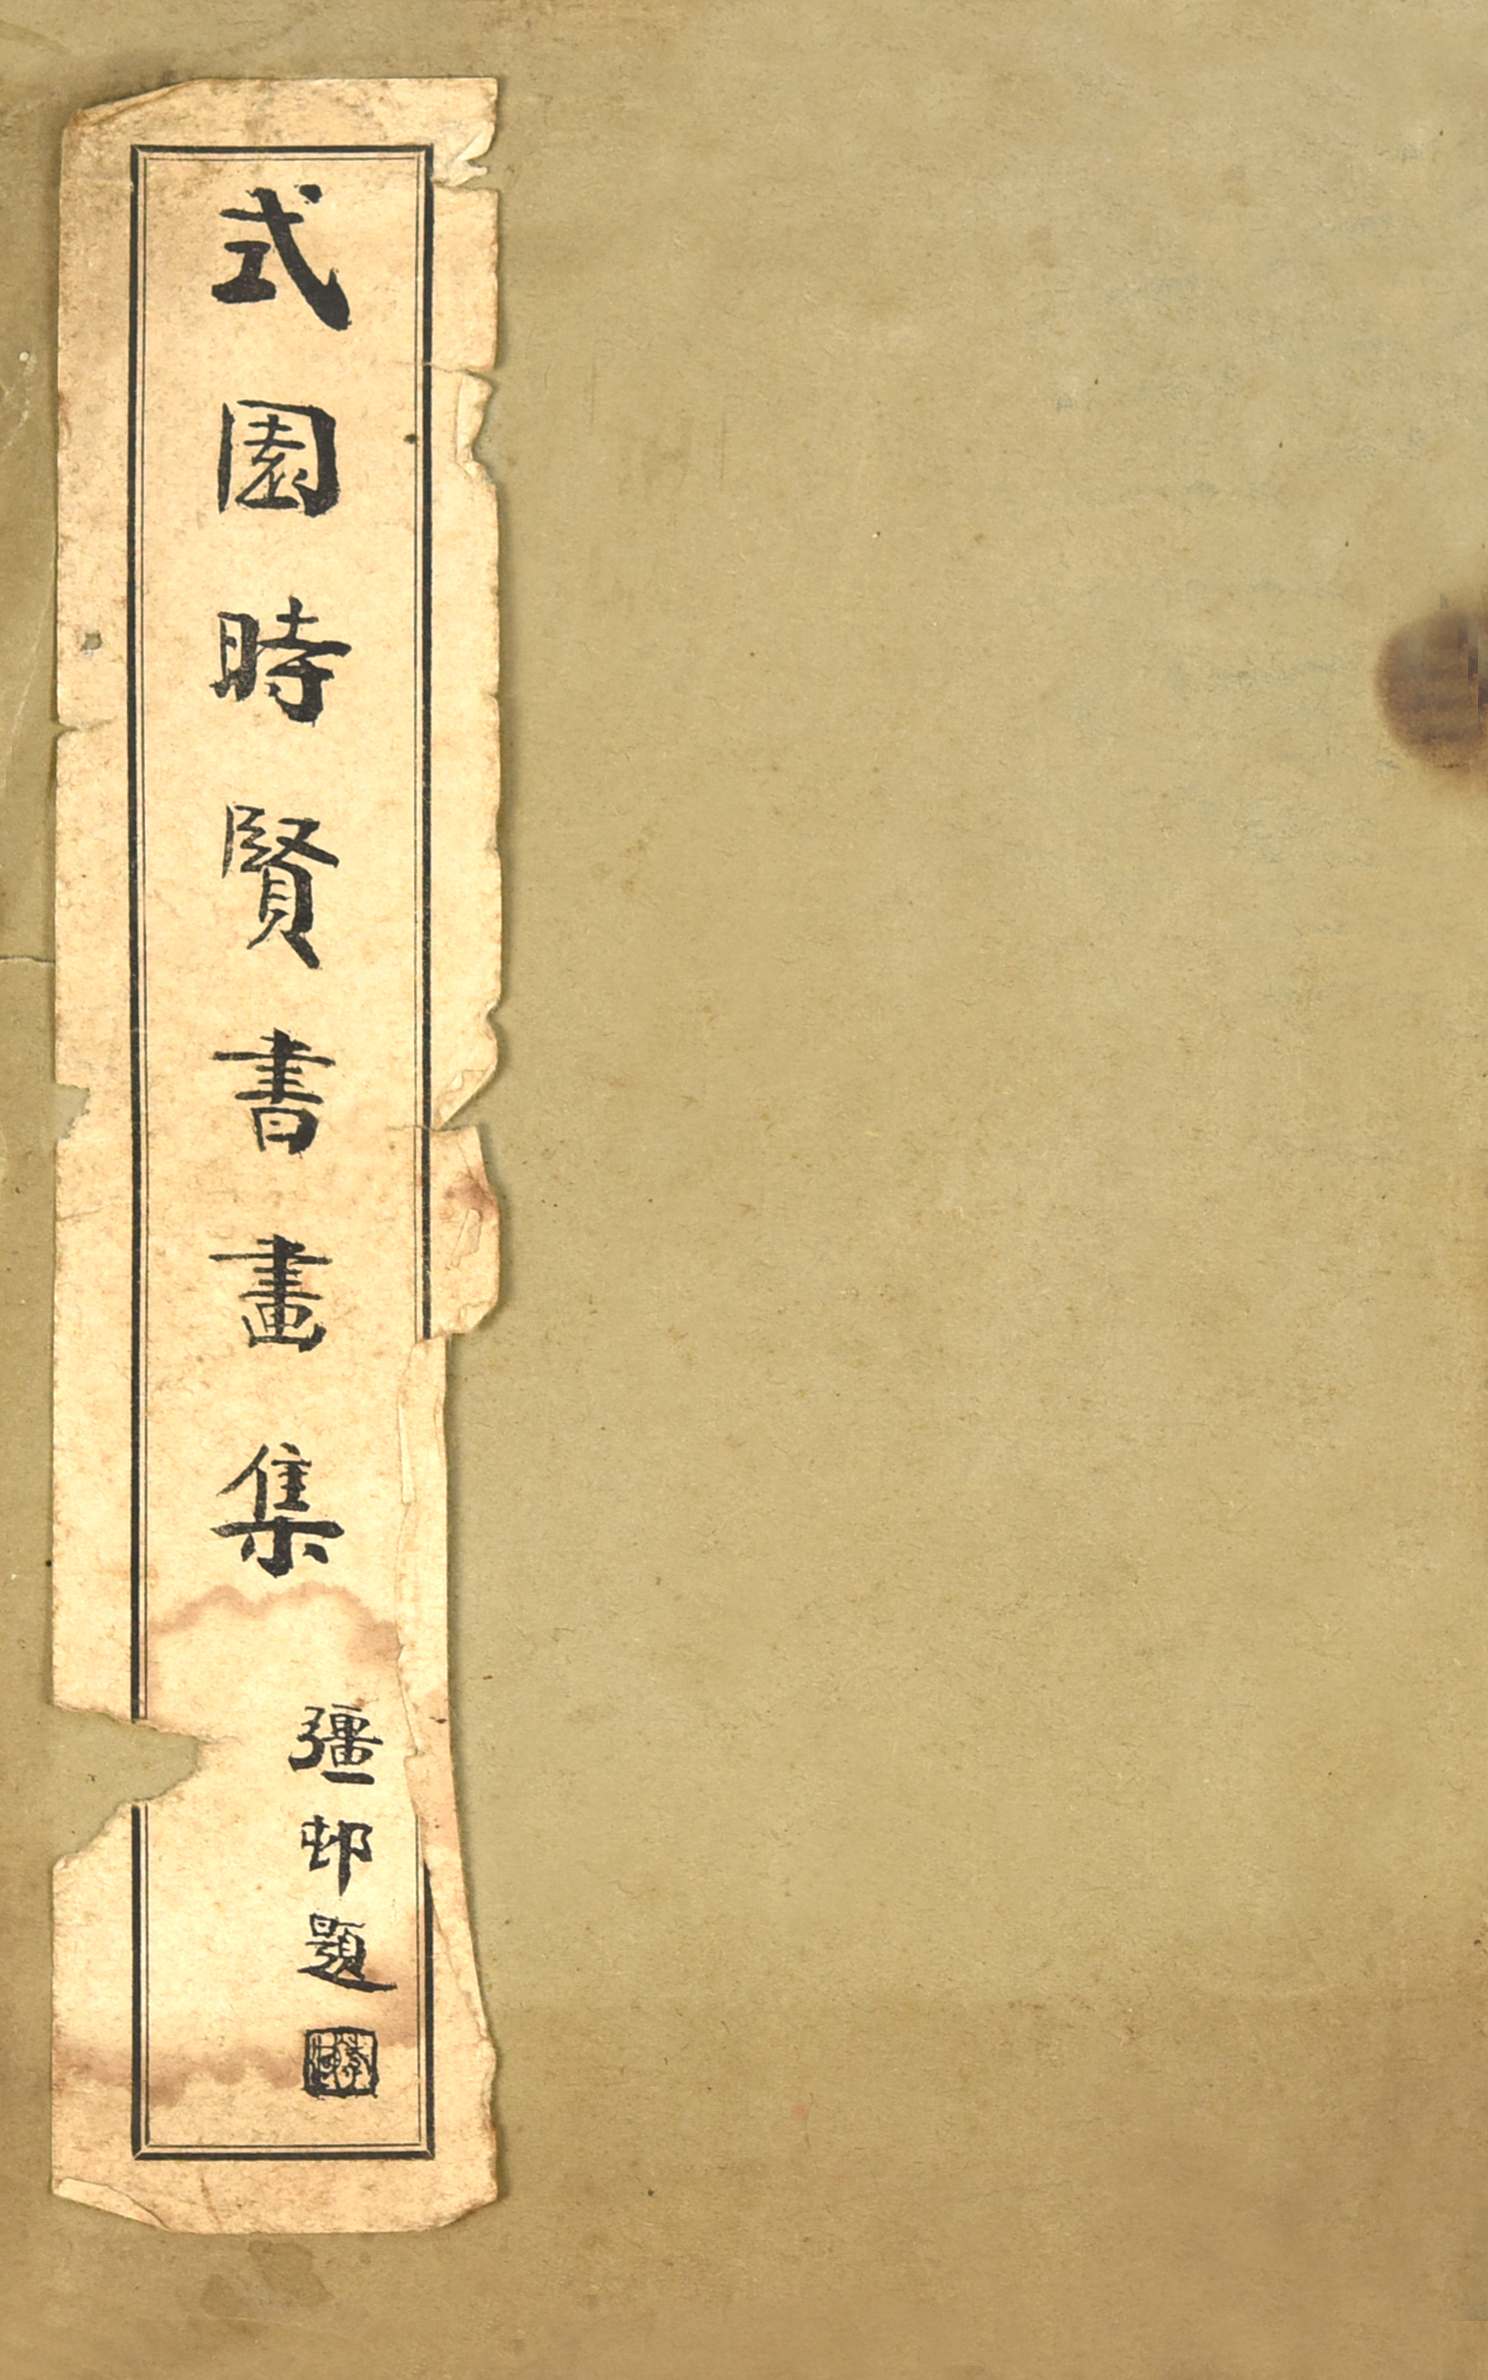 式園時賢書畫集
彊邨題